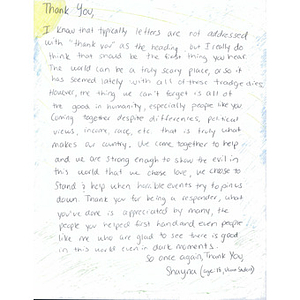 Thank You,
I know that typically letters are not addressed
with "thank you" as the heading, but I really do
think that should be the first thing you hear.
The world can be a truly scary place, or so it
has seemed lately with all of these tragedies.
However, the thing we can't forget is all of
the good in humanity, especially people like you
coming together despite differences, political
views, income, race, etc. that is truly what
makes our country. We come together to help
and we are strong enough to show the evil in
this world that we chose love, we choose to
stand & help when horrible events try to pain us
down. Thank you for being a responder, what
you've done is appreciated by many, the
people you helped first hand and even people
like me who are glad to see there is good
in this world even in dark moments.
So once again, Thank You,
Shayna (age 16,